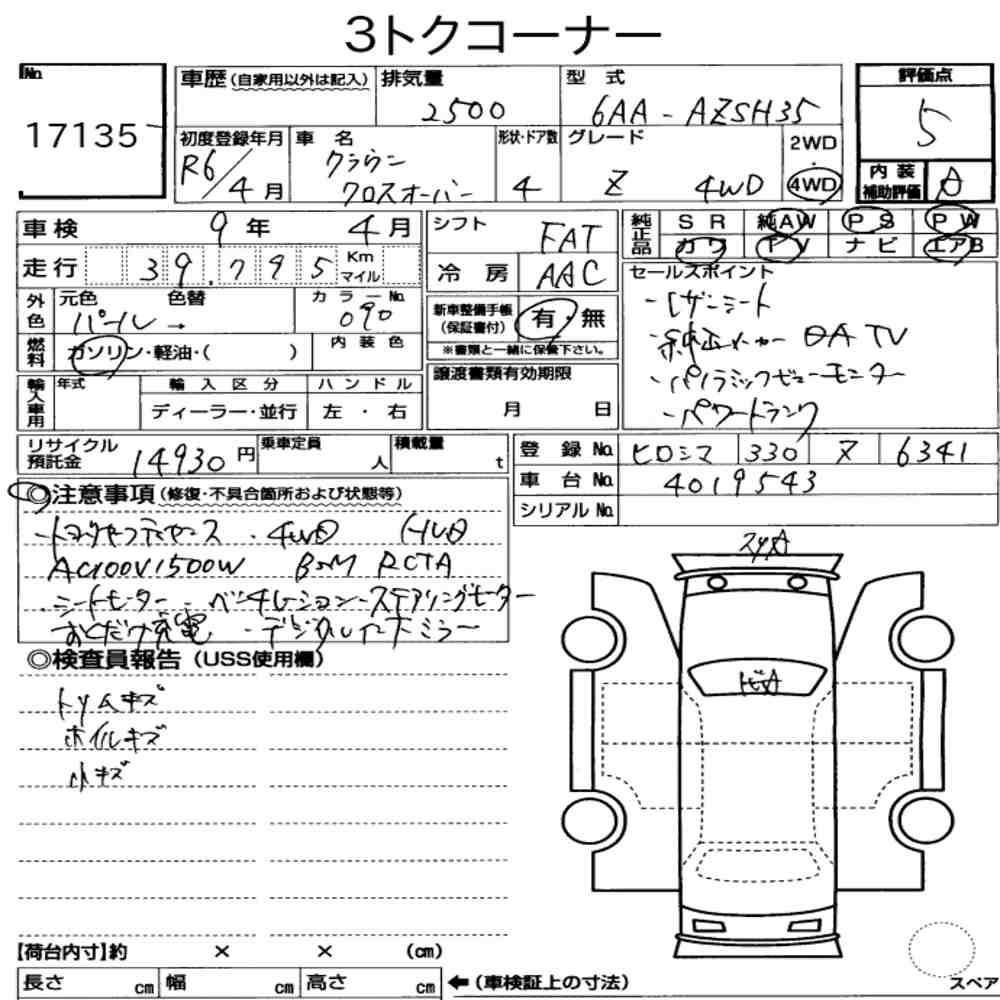 3トクコーナー
No. 17135
車歴 (自家用以外は記入)
排気量 2500
型式 6AA-AZSH35
評価点 5
初度登録年月 R6/4月
車名 クラウン クロスオーバー
形状・ドア数 4
グレード Z 4WD
2WD・4WD
内装補助評価 A
車検 9年 4月
走行 39,795 Km マイル
外色 元色 パール → 色替
カラーNo. 090
燃料 ガソリン・軽油・( )
内装色
輸入車用 年式
輸入区分 ディーラー・並行
ハンドル 左・右
シフト FAT
冷房 AAC
新車整備手帳(保証書付) 有・無
※書類と一緒に保管下さい。
譲渡書類有効期限
月 日
純正品 SR 純AW PS PW
カワ TV ナビ エアB
セールスポイント
-レザーシート
・純正メーカー DA TV
・パノラミックビューモニター
・パワートランク
リサイクル預託金 14930円
乗車定員 人
積載量 t
登録No. ヒロシマ 330 ヌ 6341
車台No. 4019543
シリアルNo.
◎注意事項 (修復・不具合箇所および状態等)
・トヨタセーフティセンス ・4WD HUD
AC100V1500W BSM RCTA
・シートヒーター ・ベンチレーション ・ステアリングヒーター
おくだけ充電 ・デジタルインナーミラー
◎検査員報告 (USS使用欄)
トリムキズ
ホイルキズ
小キズ
スリA
トビA
【荷台内寸】約 × × (cm)
長さ cm 幅 cm 高さ cm ←(車検証上の寸法)
スペア